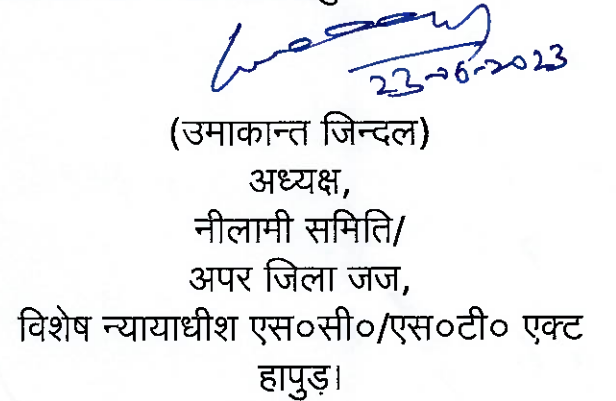 23-06-2023
(उमाकान्त जिन्दल)
अध्यक्ष,
नीलामी समिति/
अपर जिला जज,
विशेष न्यायाधीश एस०सी०/एस०टी० एक्ट
हापुड़।